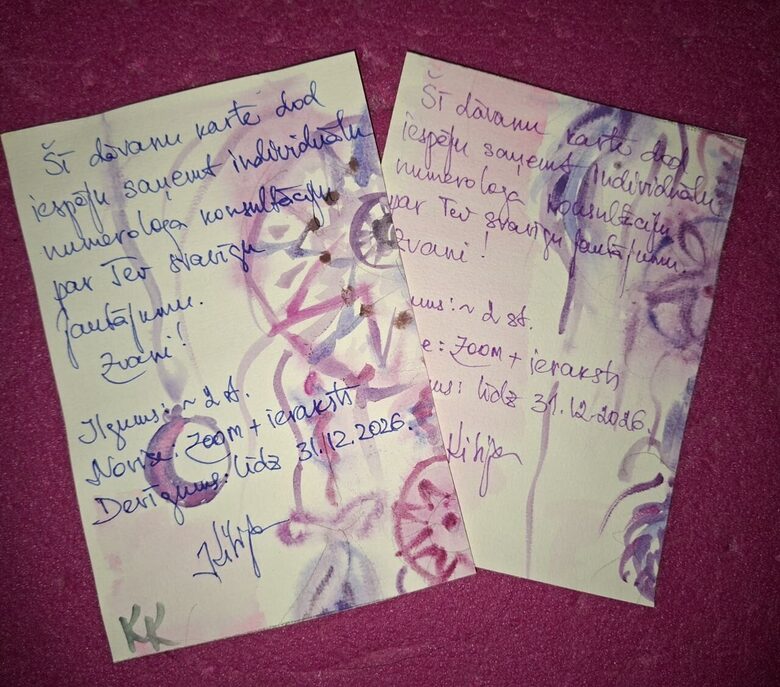 Šī dāvanu karte dod
iespēju saņemt individuālu
numerologa konsultāciju
par Tev svarīgu
jautājumu.
Zvani!
Ilgums: ~ 2 st.
Norise: Zoom + ieraksts
Derīgums: līdz 31.12.2026.
KK
Šī dāvanu karte dod
iespēju saņemt individuālu
numerologa konsultāciju
par Tev svarīgu jautājumu.
Zvani!
ums: ~ 2 st.
e: Zoom + ieraksts
ums: līdz 31.12.2026.